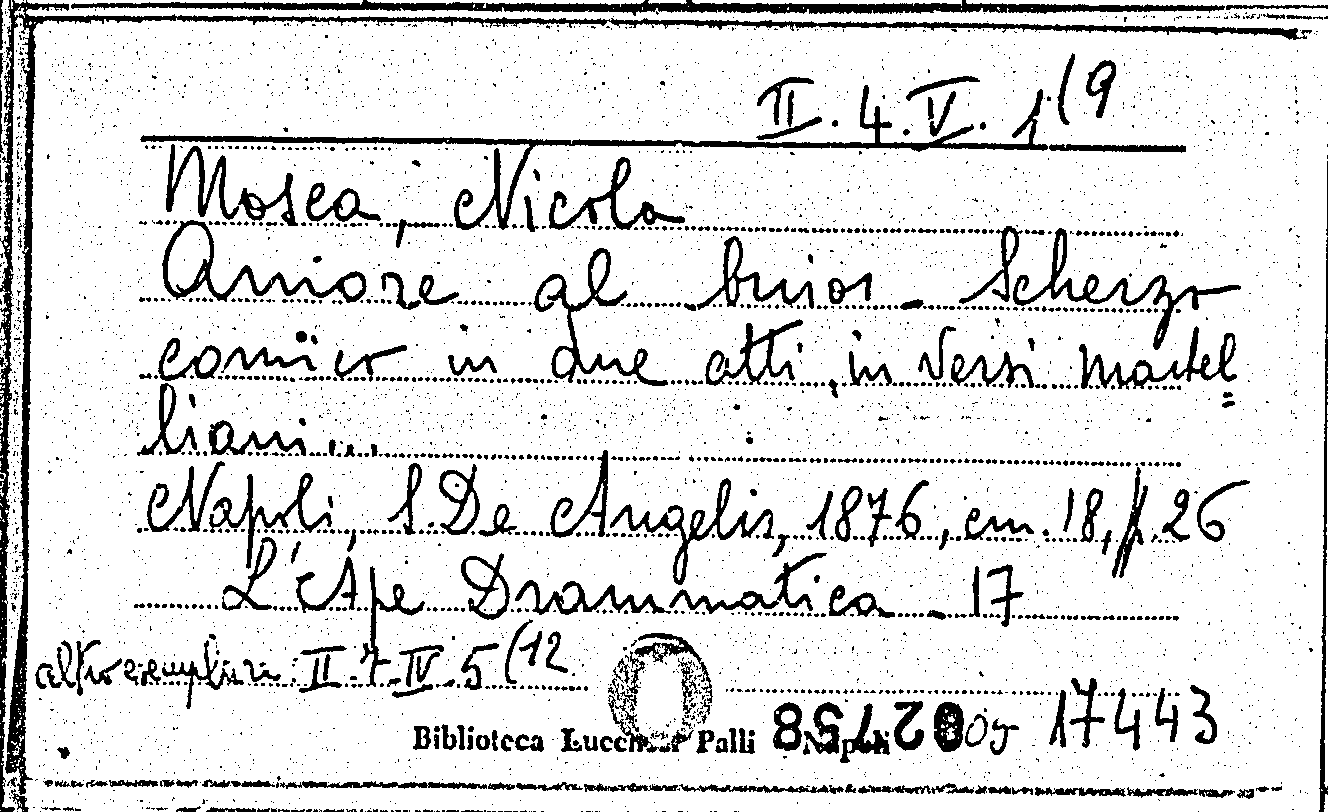 II. 4. V. 1(9
Mosca, Nicola
Amore al buio - Scherzo
comico in due atti, in versi martel
liani...
Napoli, S. De Angelis, 1876, cm. 18, p. 26
L'Ape Drammatica - 17
altro esemplare: II. 7. IV. 5(12
Biblioteca Lucchesi Palli Napoli 17443